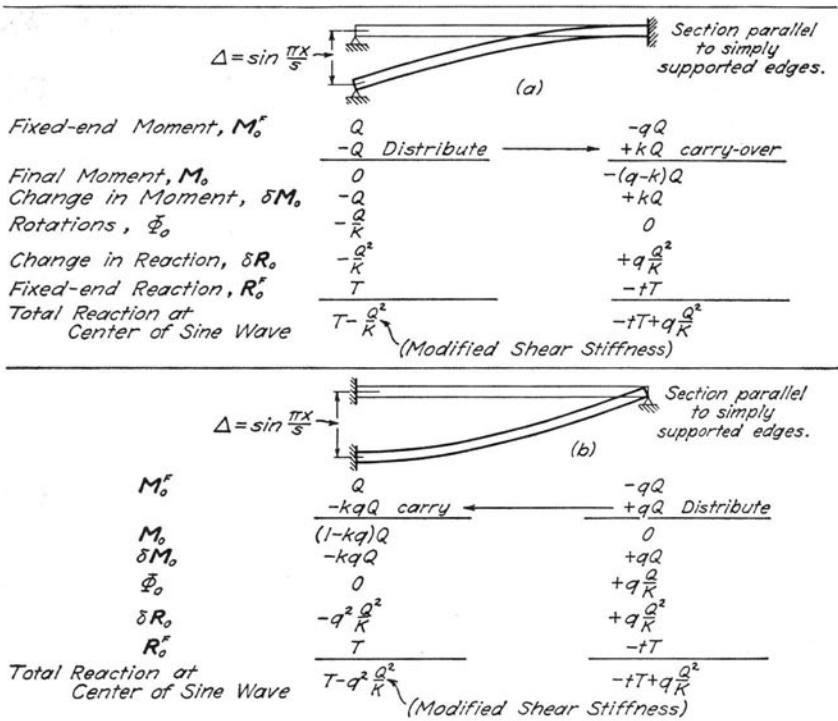 Δ = sin πx/s
(a)
Section parallel
to simply
supported edges.
Fixed-end Moment, M₀ᶠ Q -qQ
-Q Distribute +kQ carry-over
Final Moment, M₀ 0 -(q-k)Q
Change in Moment, δM₀ -Q +kQ
Rotations, Φ₀ -Q/K 0
Change in Reaction, δR₀ -Q²/K +q Q²/K
Fixed-end Reaction, R₀ᶠ T -tT
Total Reaction at
Center of Sine Wave T-Q²/K -tT+q Q²/K
(Modified Shear Stiffness)
Δ = sin πx/s
(b)
Section parallel
to simply
supported edges.
M₀ᶠ Q -qQ
-kqQ carry +qQ Distribute
M₀ (1-kq)Q 0
δM₀ -kqQ +qQ
Φ₀ 0 +q Q/K
δR₀ -q² Q²/K +q Q²/K
R₀ᶠ T -tT
Total Reaction at
Center of Sine Wave T-q² Q²/K -tT+q Q²/K
(Modified Shear Stiffness)